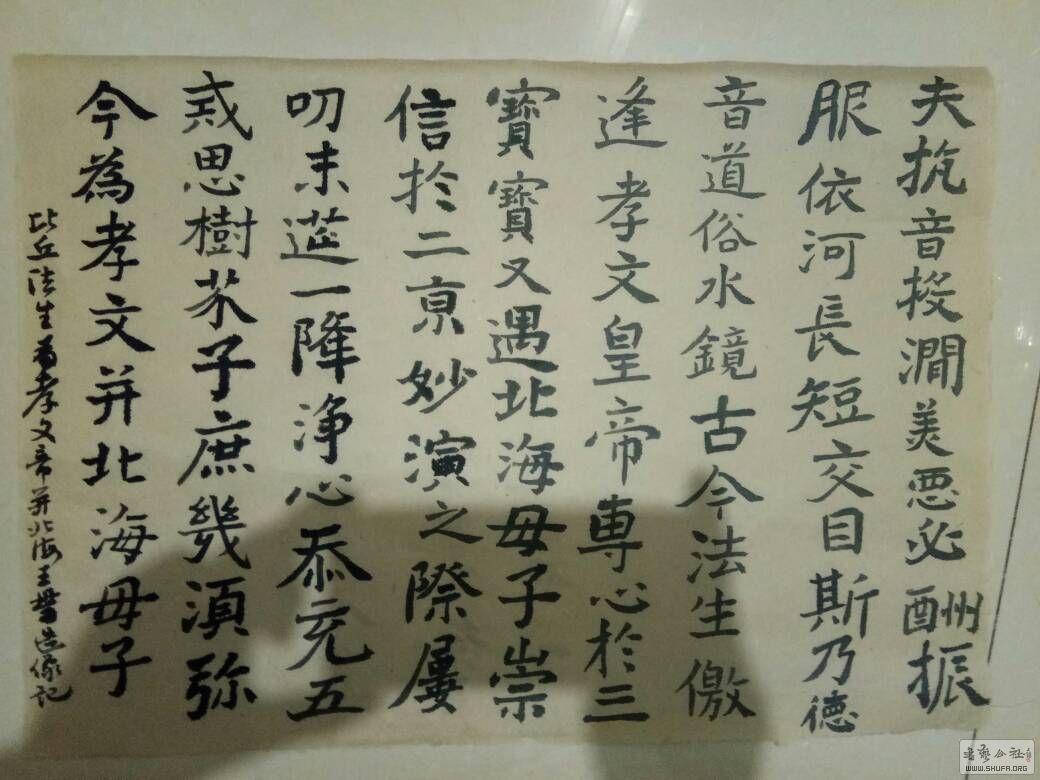 夫抗音投澗美惡必酬振
服依河長短交目斯乃德
音道俗水鏡古今法生儌
逢孝文皇帝專心於三
寶寶又遇北海母子崇
信於二京妙演之際屢
叨末筵一降淨心忝充五
戒思樹芥子庶幾須弥
今為孝文并北海母子
比丘法生為孝文帝并北海王母造像记
書藝公社
WWW.SHUFA.ORG